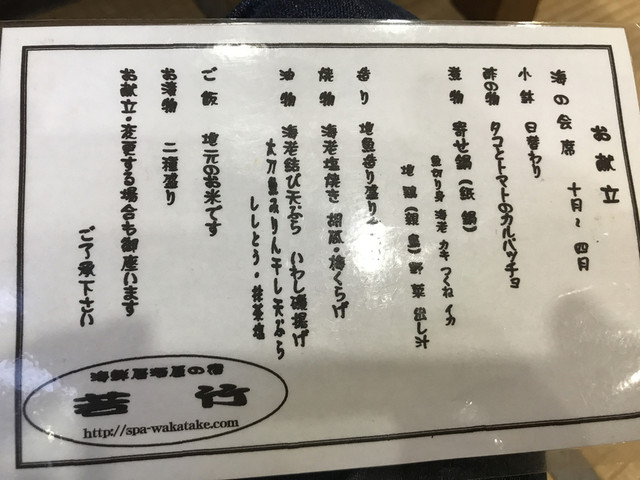 お献立
海の会席 十月~四月
小鉢 日替わり
酢の物 タコとトマトのカルパッチョ
煮物 寄せ鍋(紙鍋)
魚切り身 海老 カキ つくね イカ
地鶏(親鳥)野菜 出し汁
造り 地魚造り盛り
焼物 海老塩焼き 胡瓜・梅くらげ
油物 海老結び天ぷら いわし磯揚げ
太刀魚みりん干し天ぷら
ししとう・抹茶塩
ご飯 地元のお米です
お漬物 二種盛り
お献立・変更する場合も御座います
ご了承下さい
海鮮居酒屋の宿
若竹
http://spa-wakatake.com